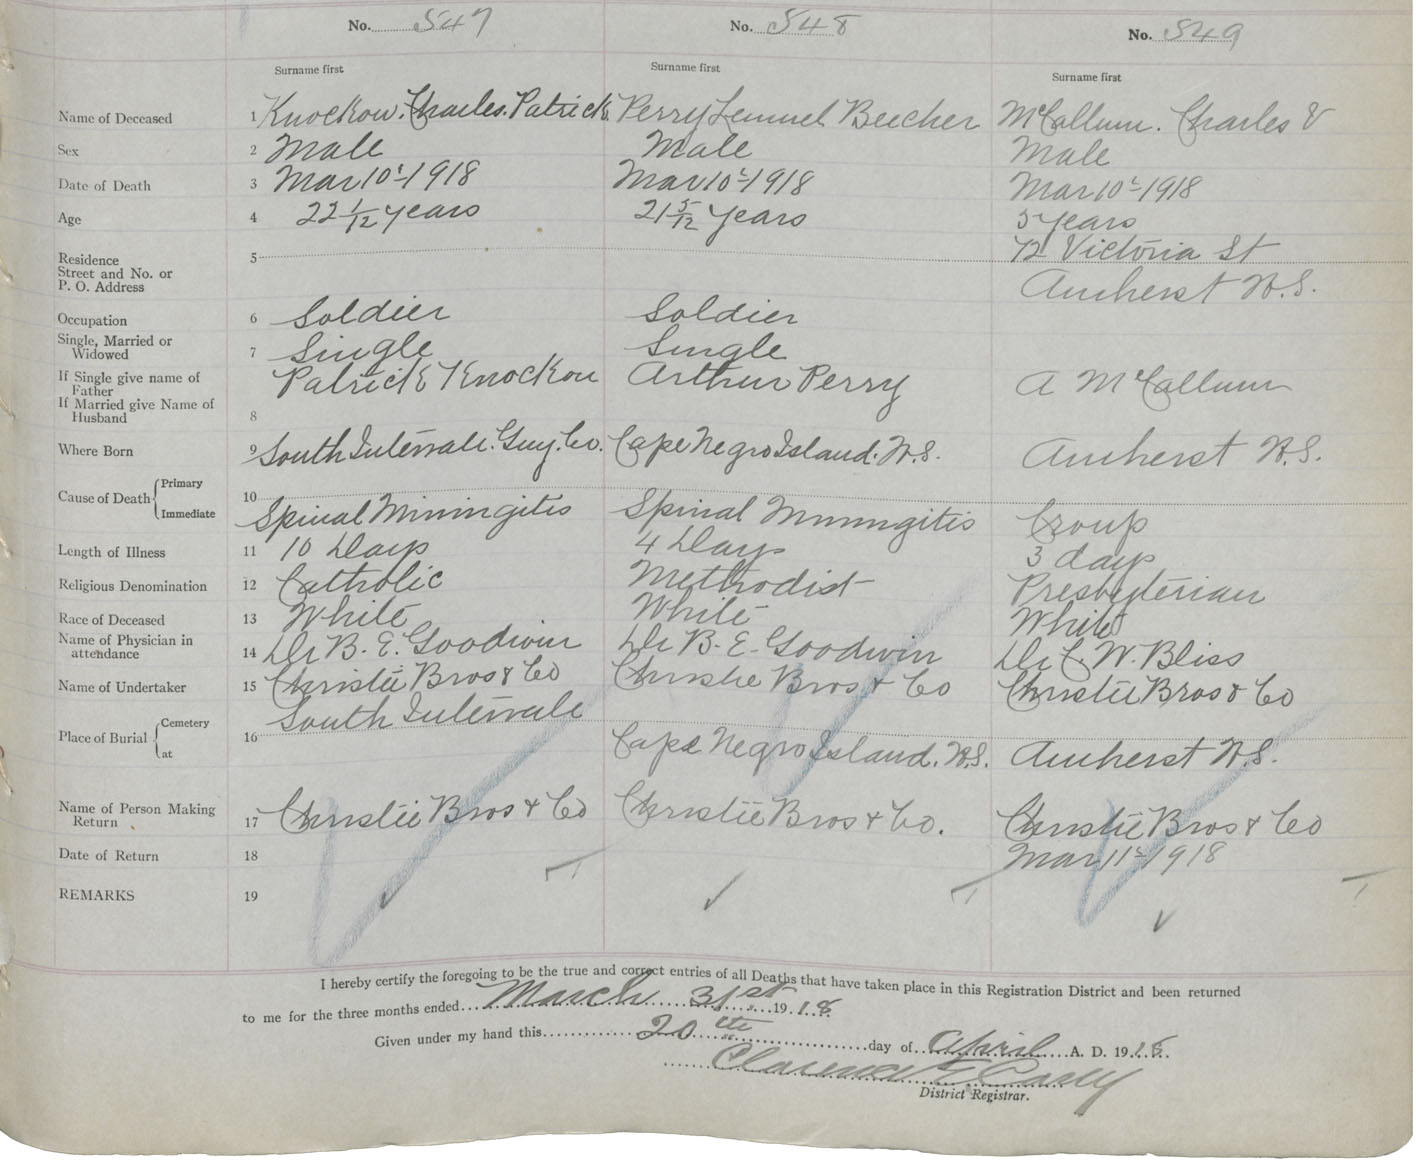 No. 547 No. 548 No. 549
Surname first Surname first Surname first
Name of Deceased 1 Knockow. Charles. Patrick. Perry Lemuel Beecher McCallum. Charles V
Sex 2 Male Male Male
Date of Death 3 Mar 10t-1918 Mar 10t-1918 Mar 10t-1918
Age 4 22 1/12 years 21 5/12 years 5 years
Residence 5 72 Victoria St
Street and No. or
P. O. Address Amherst N.S.
Occupation 6 Soldier Soldier
Single, Married or
Widowed 7 Single Single
If Single give name of
Father Patrick Knockow Arthur Perry A McCallum
If Married give Name of
Husband 8
Where Born 9 South Intervale. Guy. Co. Cape Negro Island. N.S. Amherst N.S.
Cause of Death { Primary 10
Immediate Spinal Miningitis Spinal Miningitis Croup
Length of Illness 11 10 Days 4 Days 3 days
Religious Denomination 12 Catholic Methodist Presbyterian
Race of Deceased 13 White White White
Name of Physician in
attendance 14 Dr B. E. Goodwin Dr B. E. Goodwin Dr C. W. Bliss
Name of Undertaker 15 Christie Bros & Co Christie Bros & Co Christie Bros & Co
Place of Burial { Cemetery 16 South Intervale
at Cape Negro Island. N.S. Amherst N.S.
Name of Person Making
Return 17 Christie Bros & Co Christie Bros & Co. Christie Bros & Co
Date of Return 18 Mar 11t-1918
REMARKS 19
I hereby certify the foregoing to be the true and correct entries of all Deaths that have taken place in this Registration District and been returned
to me for the three months ended March 31st 1918.
Given under my hand this 20th day of April A. D. 1918.
Clarence E Casey
District Registrar.